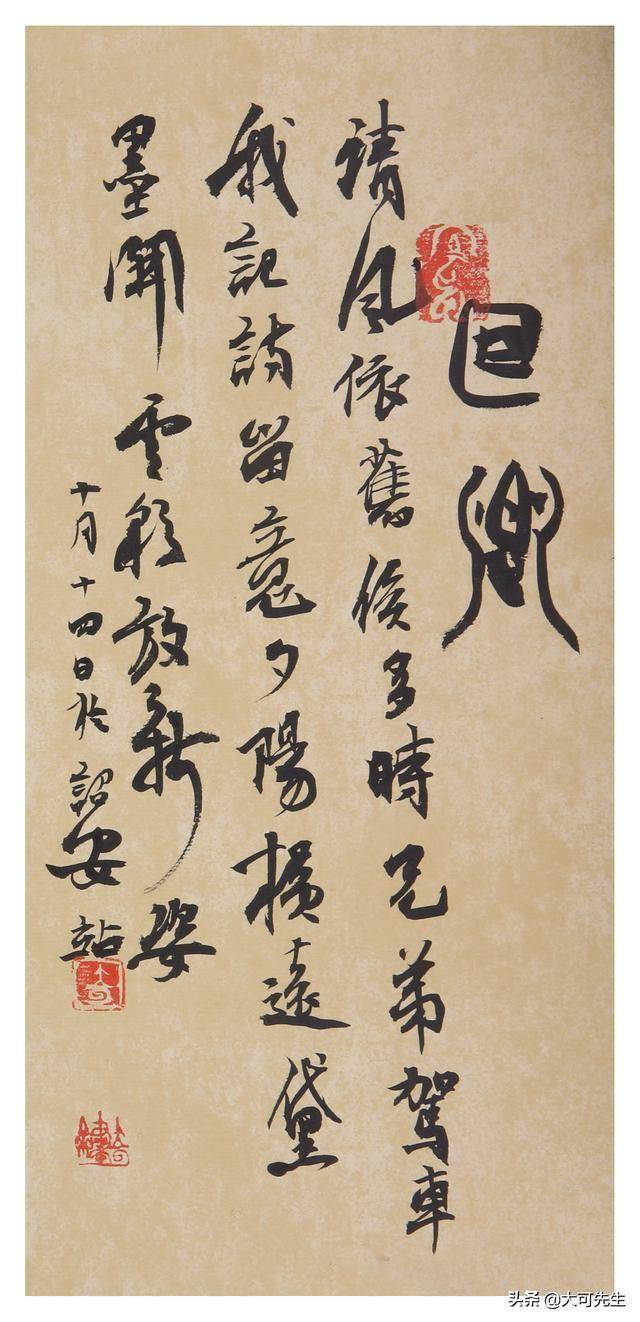 回鄉
清風依舊候多時兄弟駕車
我記詩留意夕陽橫遠黛
墨開雲彩放新姿
十月十四日於詔安站
大可
头条 @大可先生